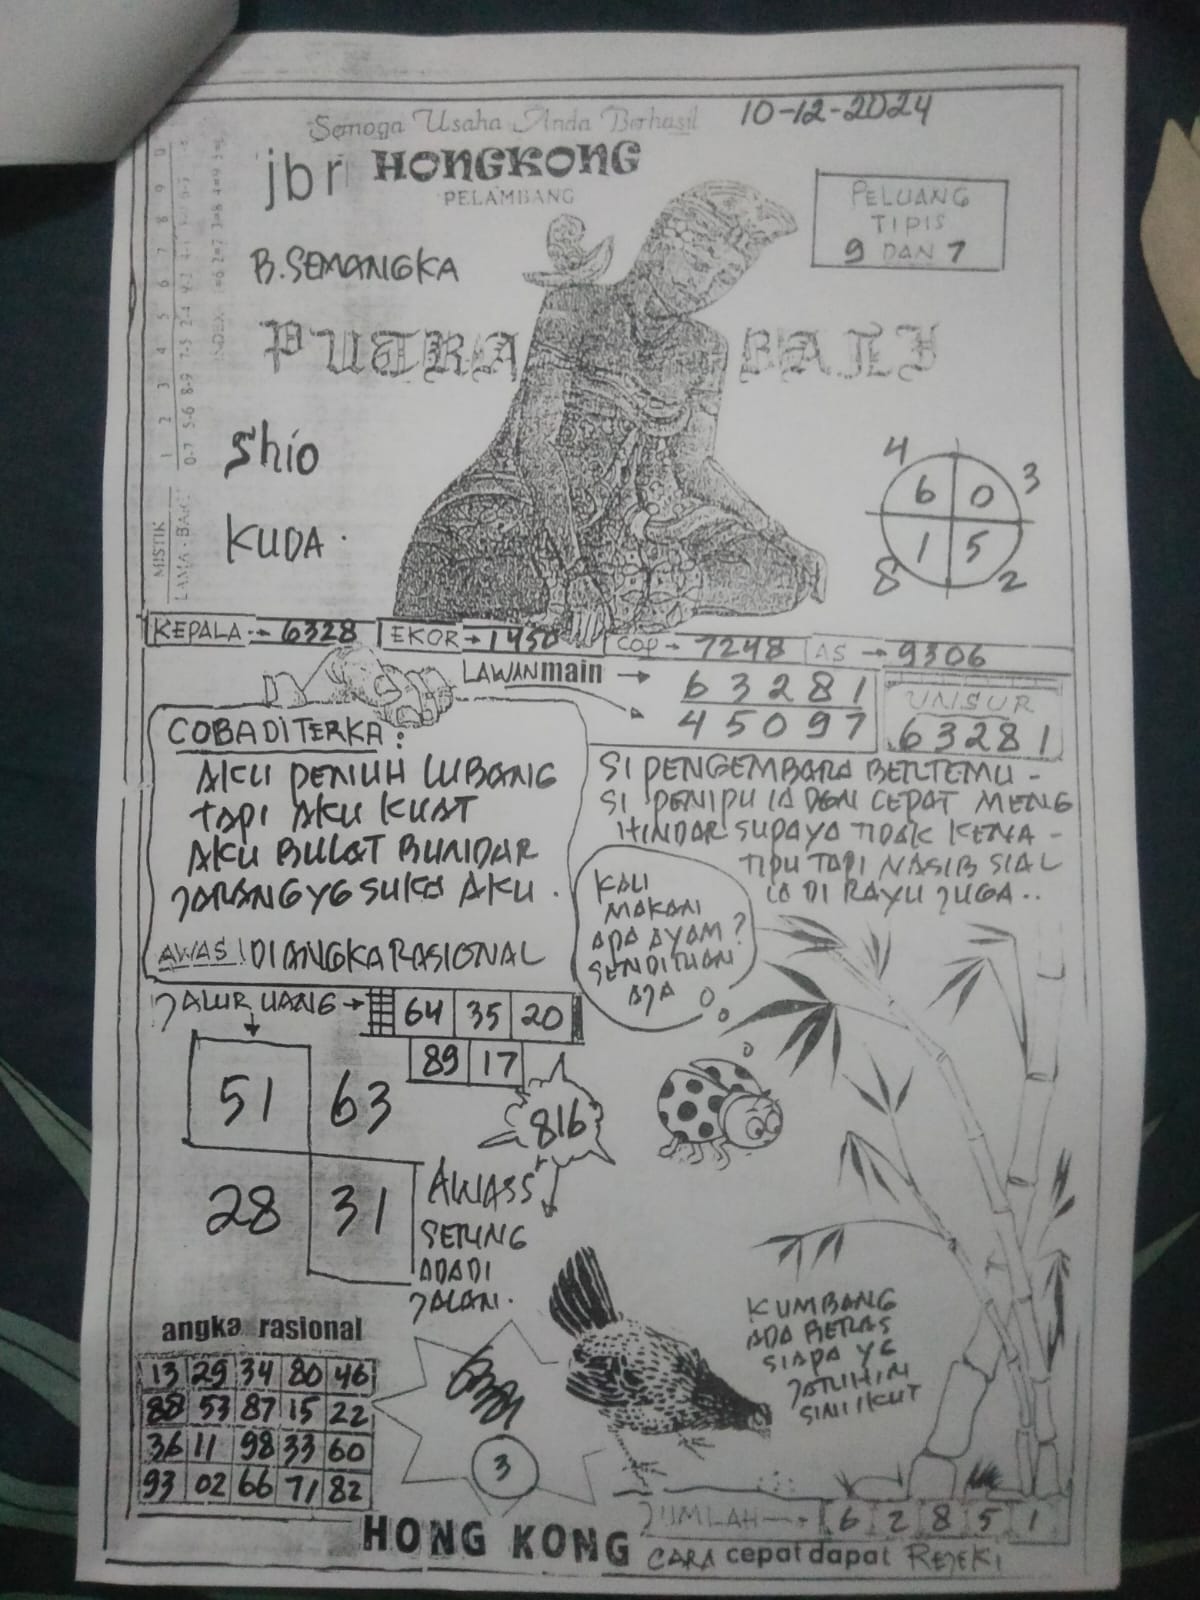 Semoga Usaha Anda Berhasil
10-12-2024
jbr HONGKONG
PELAMBANG
PELUANG
TIPIS
9 DAN 7
B.SEMANGKA
PUTRA BALI
Shio
KUDA.
4 3
6 0
1 5
8 2
MISTIK 1 2 3 4 5 6 7 8 9 0
LAMA - BARU 0-7 5-6 8-9
INDEX
KEPALA → 6328 EKOR → 1450 COP → 7248 AS → 9306
LAWAN main → 63281
45097
UNSUR
63281
COBA DITERKA:
AKU PENUH LUBANG
TAPI AKU KUAT
AKU BULAT BUNDAR
JARANG YG SUKA AKU.
AWAS! DIANGKA RASIONAL
SI PENGEMBARA BERTEMU -
SI PENIPU IA DGN CEPAT MENG
HINDAR SUPAYA TIDAK KENA -
TIPU TAPI NASIB SIAL
IA DI RAYU JUGA..
KALI
MAKAN
ADA AYAM?
SENDITUAN
AJA
JALUR UANG → 64 35 20
89 17
51 63
28 31
816
AWASS
SERING
ADA DI
JALAN.
angka rasional
13 29 34 80 46
88 53 87 15 22
36 11 98 33 60
93 02 66 71 82
3
KUMBANG
ADA BERAS
SIAPA YG
JATUHIN
SINI IKUT
JUMLAH → 6 2 8 5 1
HONG KONG CARA cepat dapat REJEKI